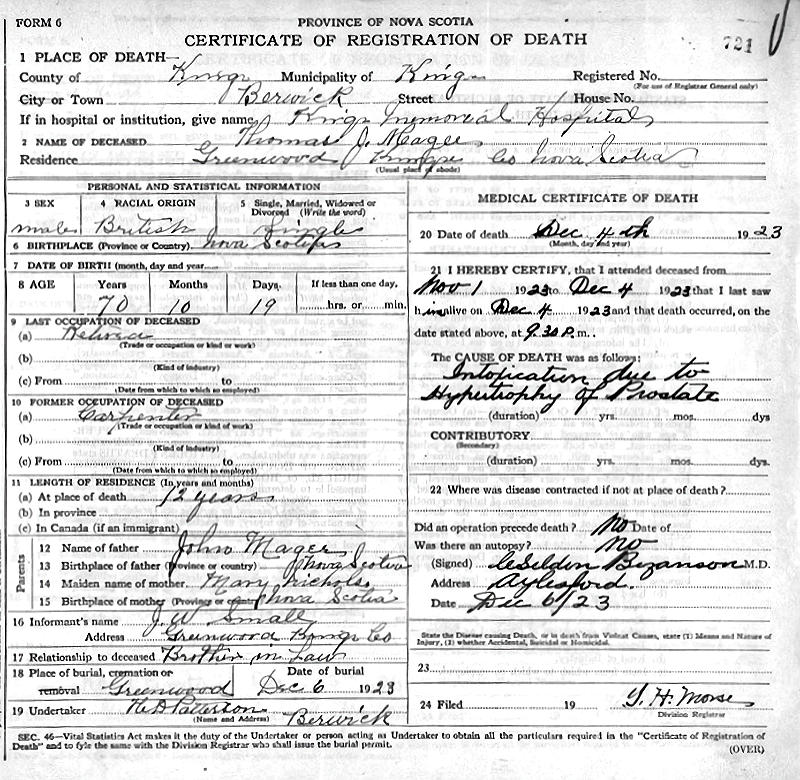 FORM 6
PROVINCE OF NOVA SCOTIA
CERTIFICATE OF REGISTRATION OF DEATH
721
1 PLACE OF DEATH—
County of Kings Municipality of Kings Registered No.
(For use of Registrar General only)
City or Town Berwick Street House No.
If in hospital or institution, give name Kings Memorial Hospital
2 NAME OF DECEASED Thomas J. Magee
Residence Greenwood Kings Co Nova Scotia
(Usual place of abode)
PERSONAL AND STATISTICAL INFORMATION
3 SEX 4 RACIAL ORIGIN 5 Single, Married, Widowed or Divorced (Write the word)
male British Single
6 BIRTHPLACE (Province or Country) Nova Scotia
7 DATE OF BIRTH (month, day and year)
8 AGE Years Months Days If less than one day,
70 10 19 hrs. or min.
9 LAST OCCUPATION OF DECEASED
(a) Retired
(Trade or occupation or kind or work)
(b)
(Kind of industry)
(c) From to
(Date from which to which so employed)
10 FORMER OCCUPATION OF DECEASED
(a) Carpenter
(Trade or occupation or kind of work)
(b)
(Kind of industry)
(c) From to
(Date from which to which so employed)
11 LENGTH OF RESIDENCE (In years and months)
(a) At place of death 12 years
(b) In province
(c) In Canada (if an immigrant)
Parents
12 Name of father John Magee
13 Birthplace of father (Province or country) Nova Scotia
14 Maiden name of mother Mary Nichols
15 Birthplace of mother (Province or country) Nova Scotia
16 Informant's name J. W. Small
Address Greenwood Kings Co
17 Relationship to deceased Brother in Law
18 Place of burial, cremation or removal Greenwood Date of burial Dec 6 1923
19 Undertaker Patterson
(Name and Address) Berwick
MEDICAL CERTIFICATE OF DEATH
20 Date of death Dec 4th 1923
(Month, day and year)
21 I HEREBY CERTIFY, that I attended deceased from
Nov 1 1923 to Dec 4 1923 that I last saw
him alive on Dec 4 1923 and that death occurred, on the
date stated above, at 9.30 P.m.
The CAUSE OF DEATH was as follows:
Intoxication due to
Hypertrophy of Prostate
(duration) yrs. mos. dys
CONTRIBUTORY
(Secondary)
(duration) yrs. mos. dys.
22 Where was disease contracted if not at place of death?
Did an operation precede death? No Date of
Was there an autopsy? No
(Signed) Bezanson M.D.
Address Aylesford
Date Dec 6/23
State the Disease causing Death, or in death from Violent Causes, state (1) Means and Nature of
Injury, (2) whether Accidental, Suicidal or Homicidal.
23
24 Filed 19 Morse
Division Registrar
SEC. 46—Vital Statistics Act makes it the duty of the Undertaker or person acting as Undertaker to obtain all the particulars required in the "Certificate of Registration of
Death" and to fyle the same with the Division Registrar who shall issue the burial permit.
(OVER)